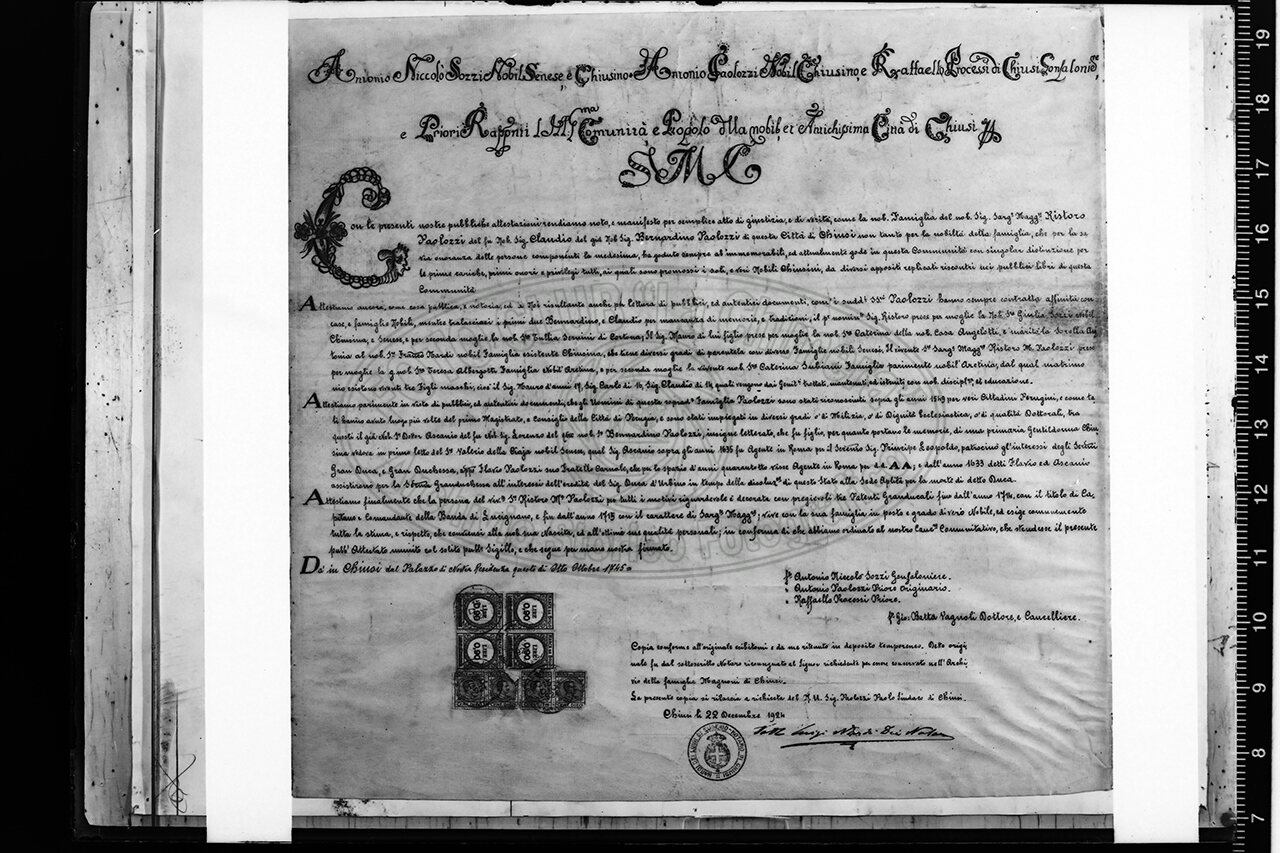 Antonio Niccolò Sozzi Nobil Senese, e Chiusino Antonio Paolozzi Nobil Chiusino, e Raffaello Processi di Chiusi Gonfalonie,
e Priori Rapp.nti l Comunità e Popolo d lla nobil, et Antichissima Città di Chiusi
S M C
Con le presenti nostre pubbliche attestazioni rendiamo noto, e manifesto per semplice atto di giustizia, e di verità, come la nob. Famiglia del nob. Sig. Sarg. Magg. Ristoro
Paolozzi del fu Nob. Sig. Claudio del già Nob. Sig. Bernardino Paolozzi di questa Città di Chiusi non tanto per la nobiltà della famiglia, che per la se
ria onoranza delle persone componenti la medesima, ha goduto sempre ab immemorabili, ed attualmente gode in questa Comunità con singolar distinzione per
le prime cariche, primi onori e privilegi tutti, ai quali sono promossi i soli, e veri Nobili Chiusini, da diversi appositi replicati riscontri nei pubblici libri di questa
Comunità
Attestiamo ancora, come cosa pubblica, e notoria, ed a Noi risultante anche p lettura di pubblici, ed autentici documenti, com' i sudd. SS.ri Paolozzi hanno sempre contratto affinità con
case, e famiglie Nobili, mentre tralasciati i primi due Bernardino, e Claudio per mancanza di memorie, e tradizioni, il p. nomin. Sig. Ristoro prese per moglie la Nob. Sra Giulia Sozzi nobil
Chiusina, e Senese, e per seconda moglie la nob. Sra Tullia Sernini di Cortona; Il Sig. Mauro di lui figlio prese per moglie la nob. Sra Caterina della nob. Casa Angelotti, e maritò la Sorella An
tonia al nob. Sr. Nardi nobil Famiglia esistente Chiusina, che tiene diversi gradi di parentela con diverse Famiglie nobili Senesi, Il vivente Sr. Sarg. Magg. Ristoro M. Paolozzi prese
per moglie la q. nob. Sra Teresa Albergotti Famiglia Nobil' Aretina, e per seconda moglie la vivente nob. Sra Caterina Subiani Famiglia parimente nobil' Aretina, dal qual matrimo
nio esistono viventi tre Figli maschi, cioè il Sig. Mauro d'anni 17, Sig. Carlo di 16, Sig. Claudio di 14, quali vengono dai Genit. trattati, mantenuti, ed istruiti con nob. discipl., ed educazione.
Attestiamo parimente in vista di pubblici, ed autentici documenti, che gli Uomini di questa Famiglia Paolozzi sono stati riconosciuti sopra gli anni 1549 per veri Cittadini Perugini, e come ta
li hanno avuto luogo più volte del primo Magistrato, e Consiglio della Città di Perugia, e sono stati impiegati in diversi gradi o' di Milizia, o' di Dignità Ecclesiastica, o' di qualità Dottorali, tra
questi il già Nob. Sr. Dottor Ascanio del fu Nob. Sig. Lorenzo del nob. Sr. Bernardino Paolozzi, insigne letterato, che fu figlio, per quanto portano le memorie, di una primaria Gentildonna Chiu
sina vedova in primo letto del Sr. Valerio della Ciaja nobil Senese, qual Sig. Ascanio sopra gli anni 1635 fu Agente in Roma per il Serenis. Sig. Principe Leopoldo, patrocinò gl'interessi degli Serenis.
Gran Duca, e Gran Duchessa, Flavio Paolozzi suo Fratello Carnale, che per lo spazio d'anni quarantotto visse Agente in Roma per d.d. AA; e dall'anno 1633 detti Flavio ed Ascanio
assistirono per la Granduchessa all'interessi dell'eredità del Sig. Duca d'Urbino in tempo della disoluz. di questo Stato alla Sede Apl.ca per la morte di detto Duca.
Attestiamo finalmente che la persona del viv. Sr. Ristoro M. Paolozzi per tutti i motivi riguardevole è decorata con pregievoli tre Patenti Granducali fino dall'anno, con il titolo di Ca
pitano e Comandante della Banda di Lucignano, e fin dall'anno 1715 con il carattere di Sarg. Magg.; vive con la sua famiglia in posto e grado di vero Nobile, ed esige comunemente
tutta la stima, e rispetto, che conviensi alla nob. sua Nascita, ed all'ottime sue qualità personali; in conferma di che abbiamo ordinato al nostro Canc. Comunitativo, che stendesse il presente
pubb. Attestato munito col solito pubb. Sigillo, e che segue per mano nostra firmato.
Da' in Chiusi dal Palazzo di Nostra Residenza questo dì Otto Ottobre 1745=
f. Antonio Niccolo Sozzi Gonfaloniere.
" Antonio Paolozzi Priore Originario.
" Raffaello Procossi Priore.
f. Gio: Batta Vagnoli Dottore, e Cancelliere.
Copia conforme all'originale esibitomi e da me ritenuto in deposito temporaneo. Detto origi
nale fu dal sottoscritto Notaro riconsegnato al Signor richiedente per essere conservato nell'Archi
vio della famiglia Magnoni di Chiusi.
La presente copia si rilascia a richiesta del N. U. Sig. Paolozzi Paolo Sindaco di Chiusi.
Chiusi li 22 Decembre 1924
Dott. Luigi Nardi Dei Notaro
LIRE 0.90
LIRE 0.90
LIRE 0.90
LIRE 0.90
19
18
17
16
15
14
13
12
11
10
9
8
7